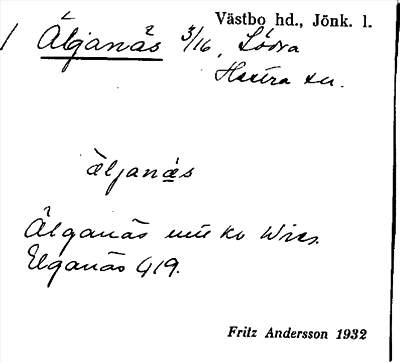 Västbo hd., Jönk. l.
Älganäs 3/16, Södra
Hestra sn.
äljanäs
Älganäs
Elganäs 419.
Fritz Andersson 1932